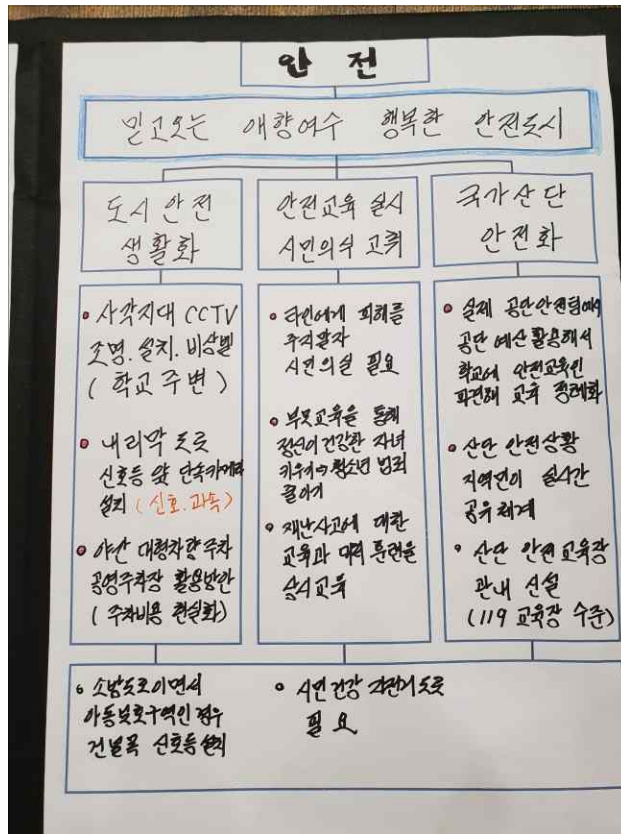 안 전
믿고오는 애향여수 행복한 안전도시
도시안전
생활화
안전교육 실시
시민의식 고취
국가산단
안전화
• 사각지대 CCTV
조명. 설치. 비상벨
( 학교 주변 )
• 내리막 도로
신호등 앞 단속카메라
설치 ( 신호. 과속 )
• 야간 대형차량 주차
공영주차장 활용방안
( 주차비용 현실화 )
• 타인에게 피해를
주지말자
시민의식 필요
• 부모교육을 통해
정신이 건강한 자녀
키우기 ⇒ 청소년 범죄
줄이기
• 재난사고에 대한
교육과 대피 훈련을
상시교육
• 실제 공단안전팀에서
공단 예산 활용해서
학교에 안전교육인
파견해 교육 정례화
• 산단 안전상황
지역민이 실시간
공유체계
• 산단 안전교육장
관내 신설
(119 교육장 수준)
• 소방도로이면서
아동보호구역인 경우
건널목 신호등 설치
• 시민건강 자전거도로
필요